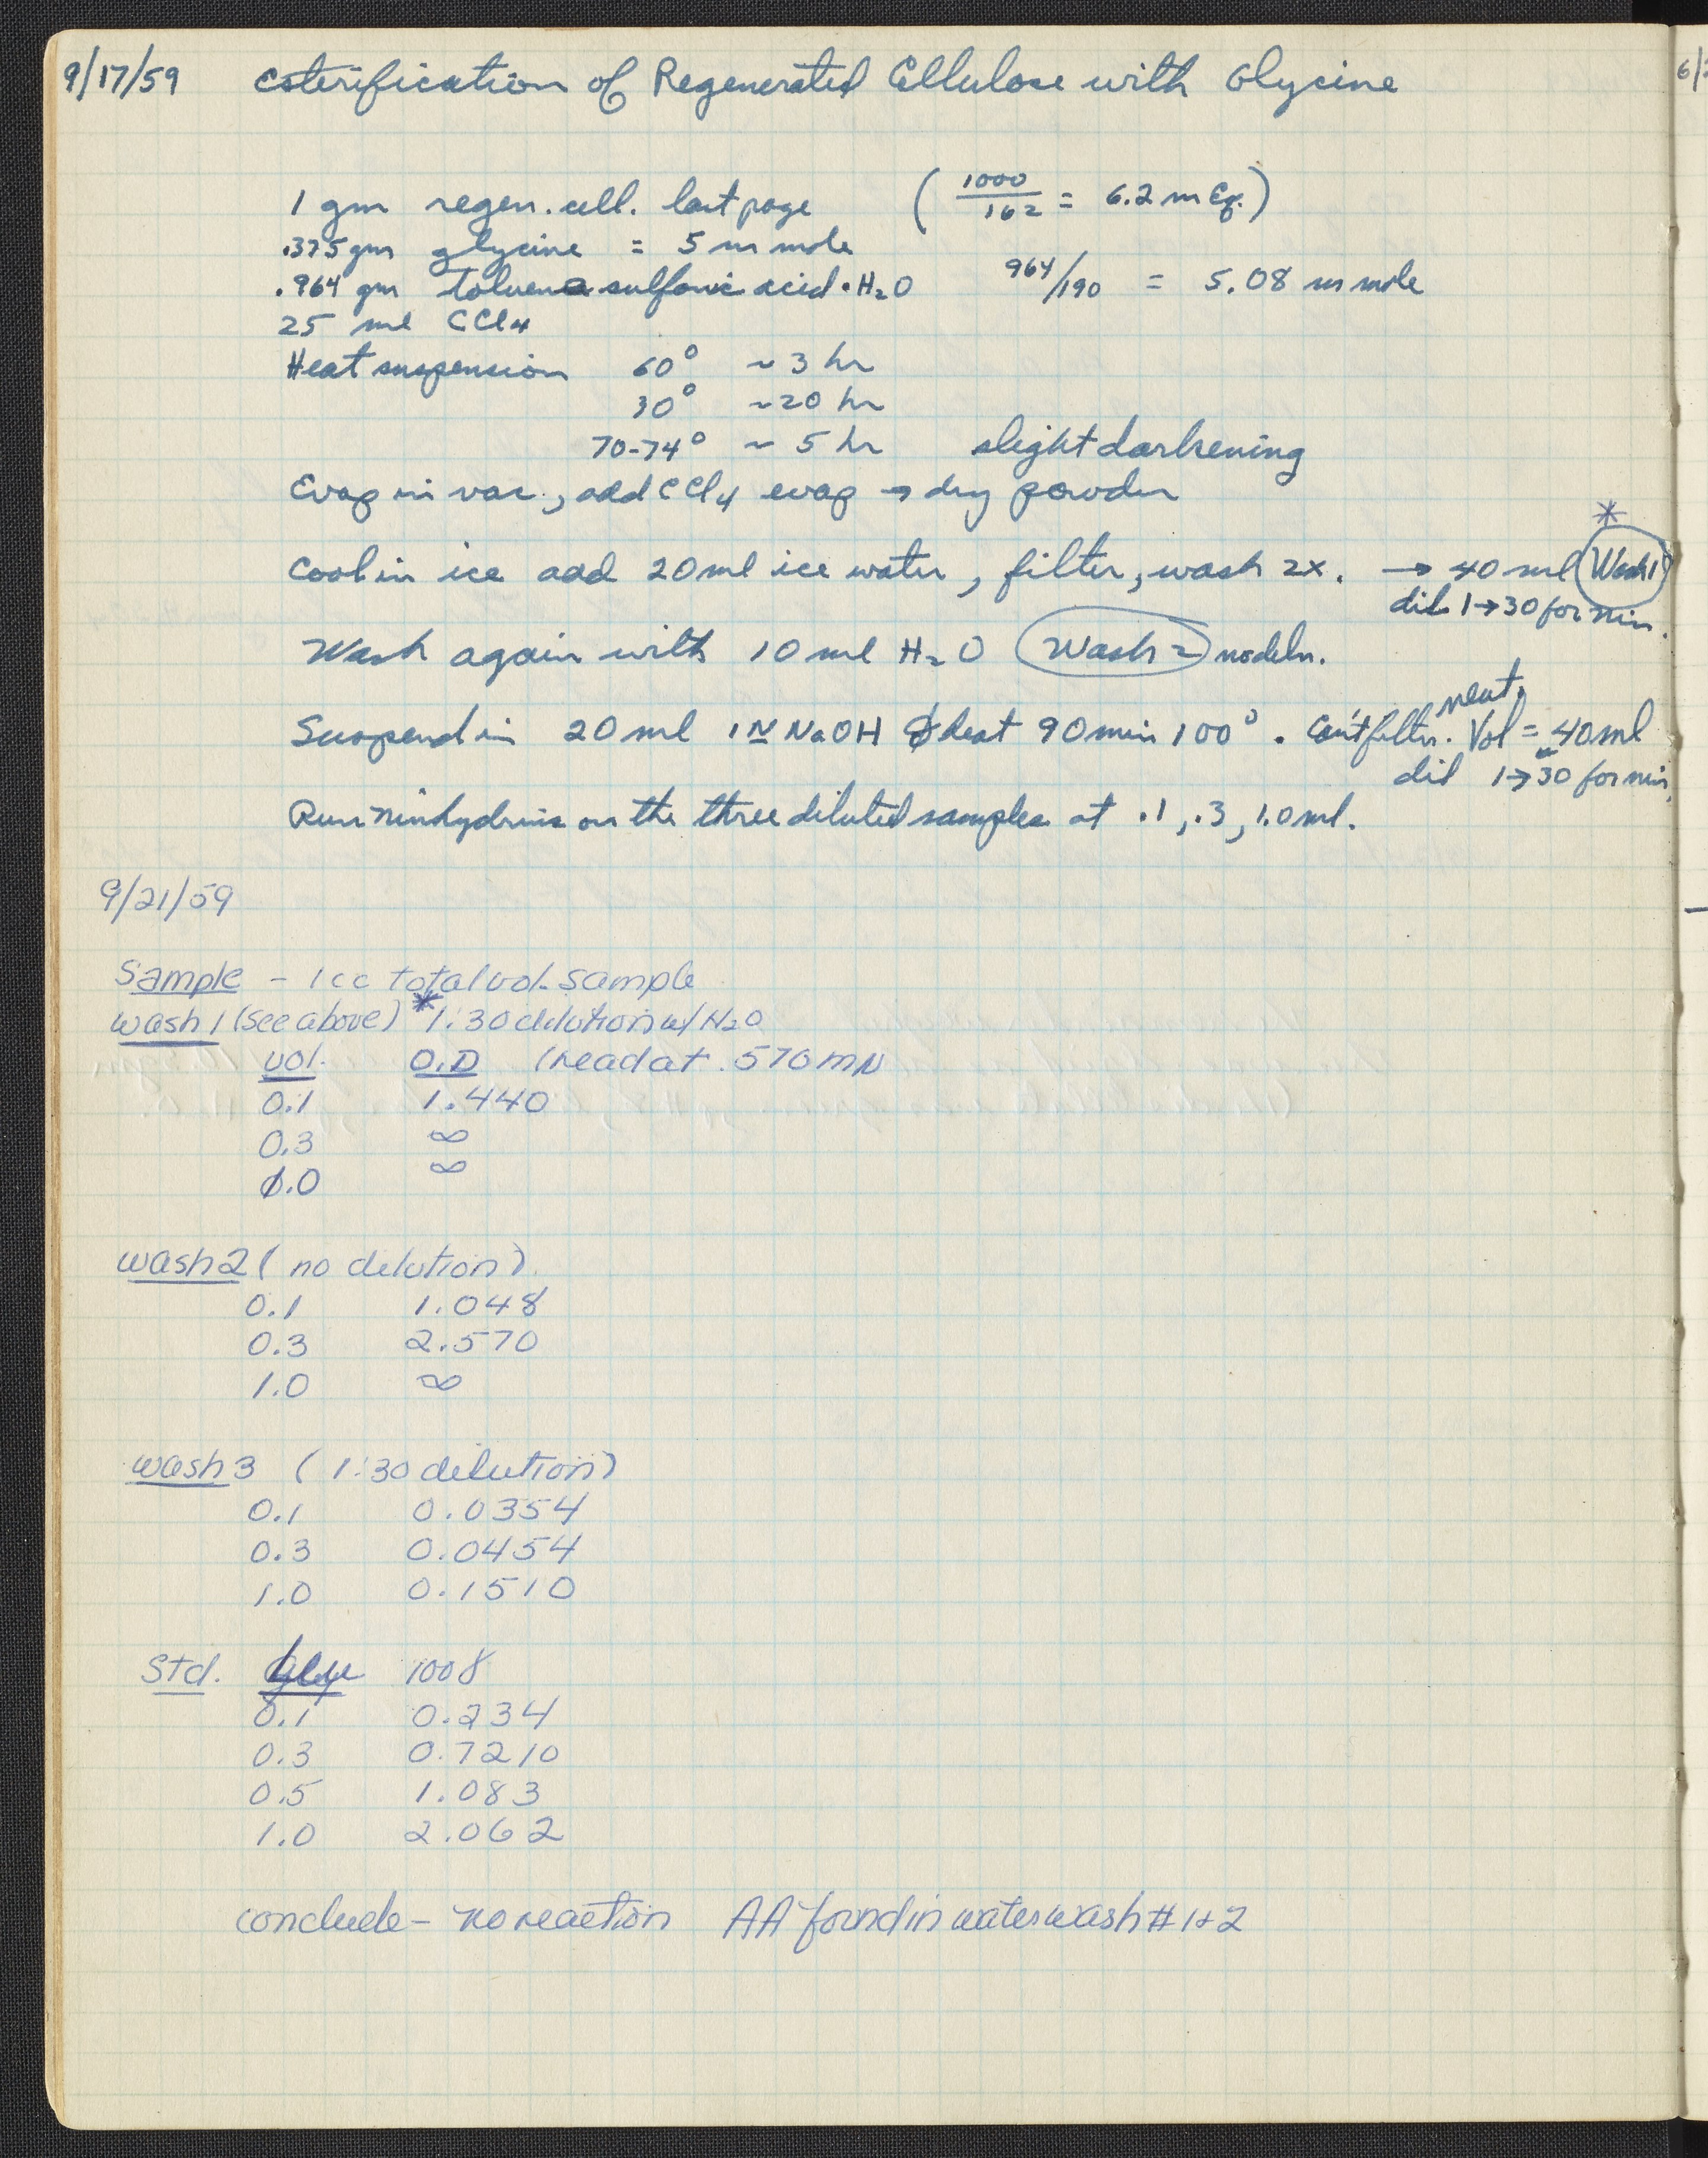 9/17/59 Esterification of Regenerated Cellulose with Glycine
1 gm regen. cell. last page ( 1000/162 = 6.2 m Eq. )
.375 gm glycine = 5 m mole
.964 gm toluene sulfonic acid · H₂O 964/190 = 5.08 m mole
25 ml CCl₄
Heat suspension 60° ~ 3 hr
30° ~20 hr
70-74° ~ 5 hr slight darkening
Evap in vac., add CCl₄ evap → dry powder
*
Cool in ice add 20 ml ice water, filter, wash 2x. → 40 ml Wash 1
dil 1→30 for nin.
Wash again with 10 ml H₂O Wash 2 no deln.
neut.
Suspend in 20 ml 1N NaOH & heat 90 min 100°. Can't filter. Vol = 40 ml
dil 1→30 for nin.
Run ninhydrins on the three diluted samples at .1, .3, 1.0 ml.
9/21/59
Sample - 1 cc total vol. sample
wash 1 (see above) * 1:30 dilution w/ H₂O
vol. O.D (read at .570 mμ
0.1 1.440
0.3 ∞
1.0 ∞
wash 2 ( no dilution)
0.1 1.048
0.3 2.570
1.0 ∞
wash 3 ( 1:30 dilution)
0.1 0.0354
0.3 0.0454
1.0 0.1510
Std. Glye 100 γ
0.1 0.234
0.3 0.7210
0.5 1.083
1.0 2.062
conclude - no reaction AA found in water wash # 1+2
6/